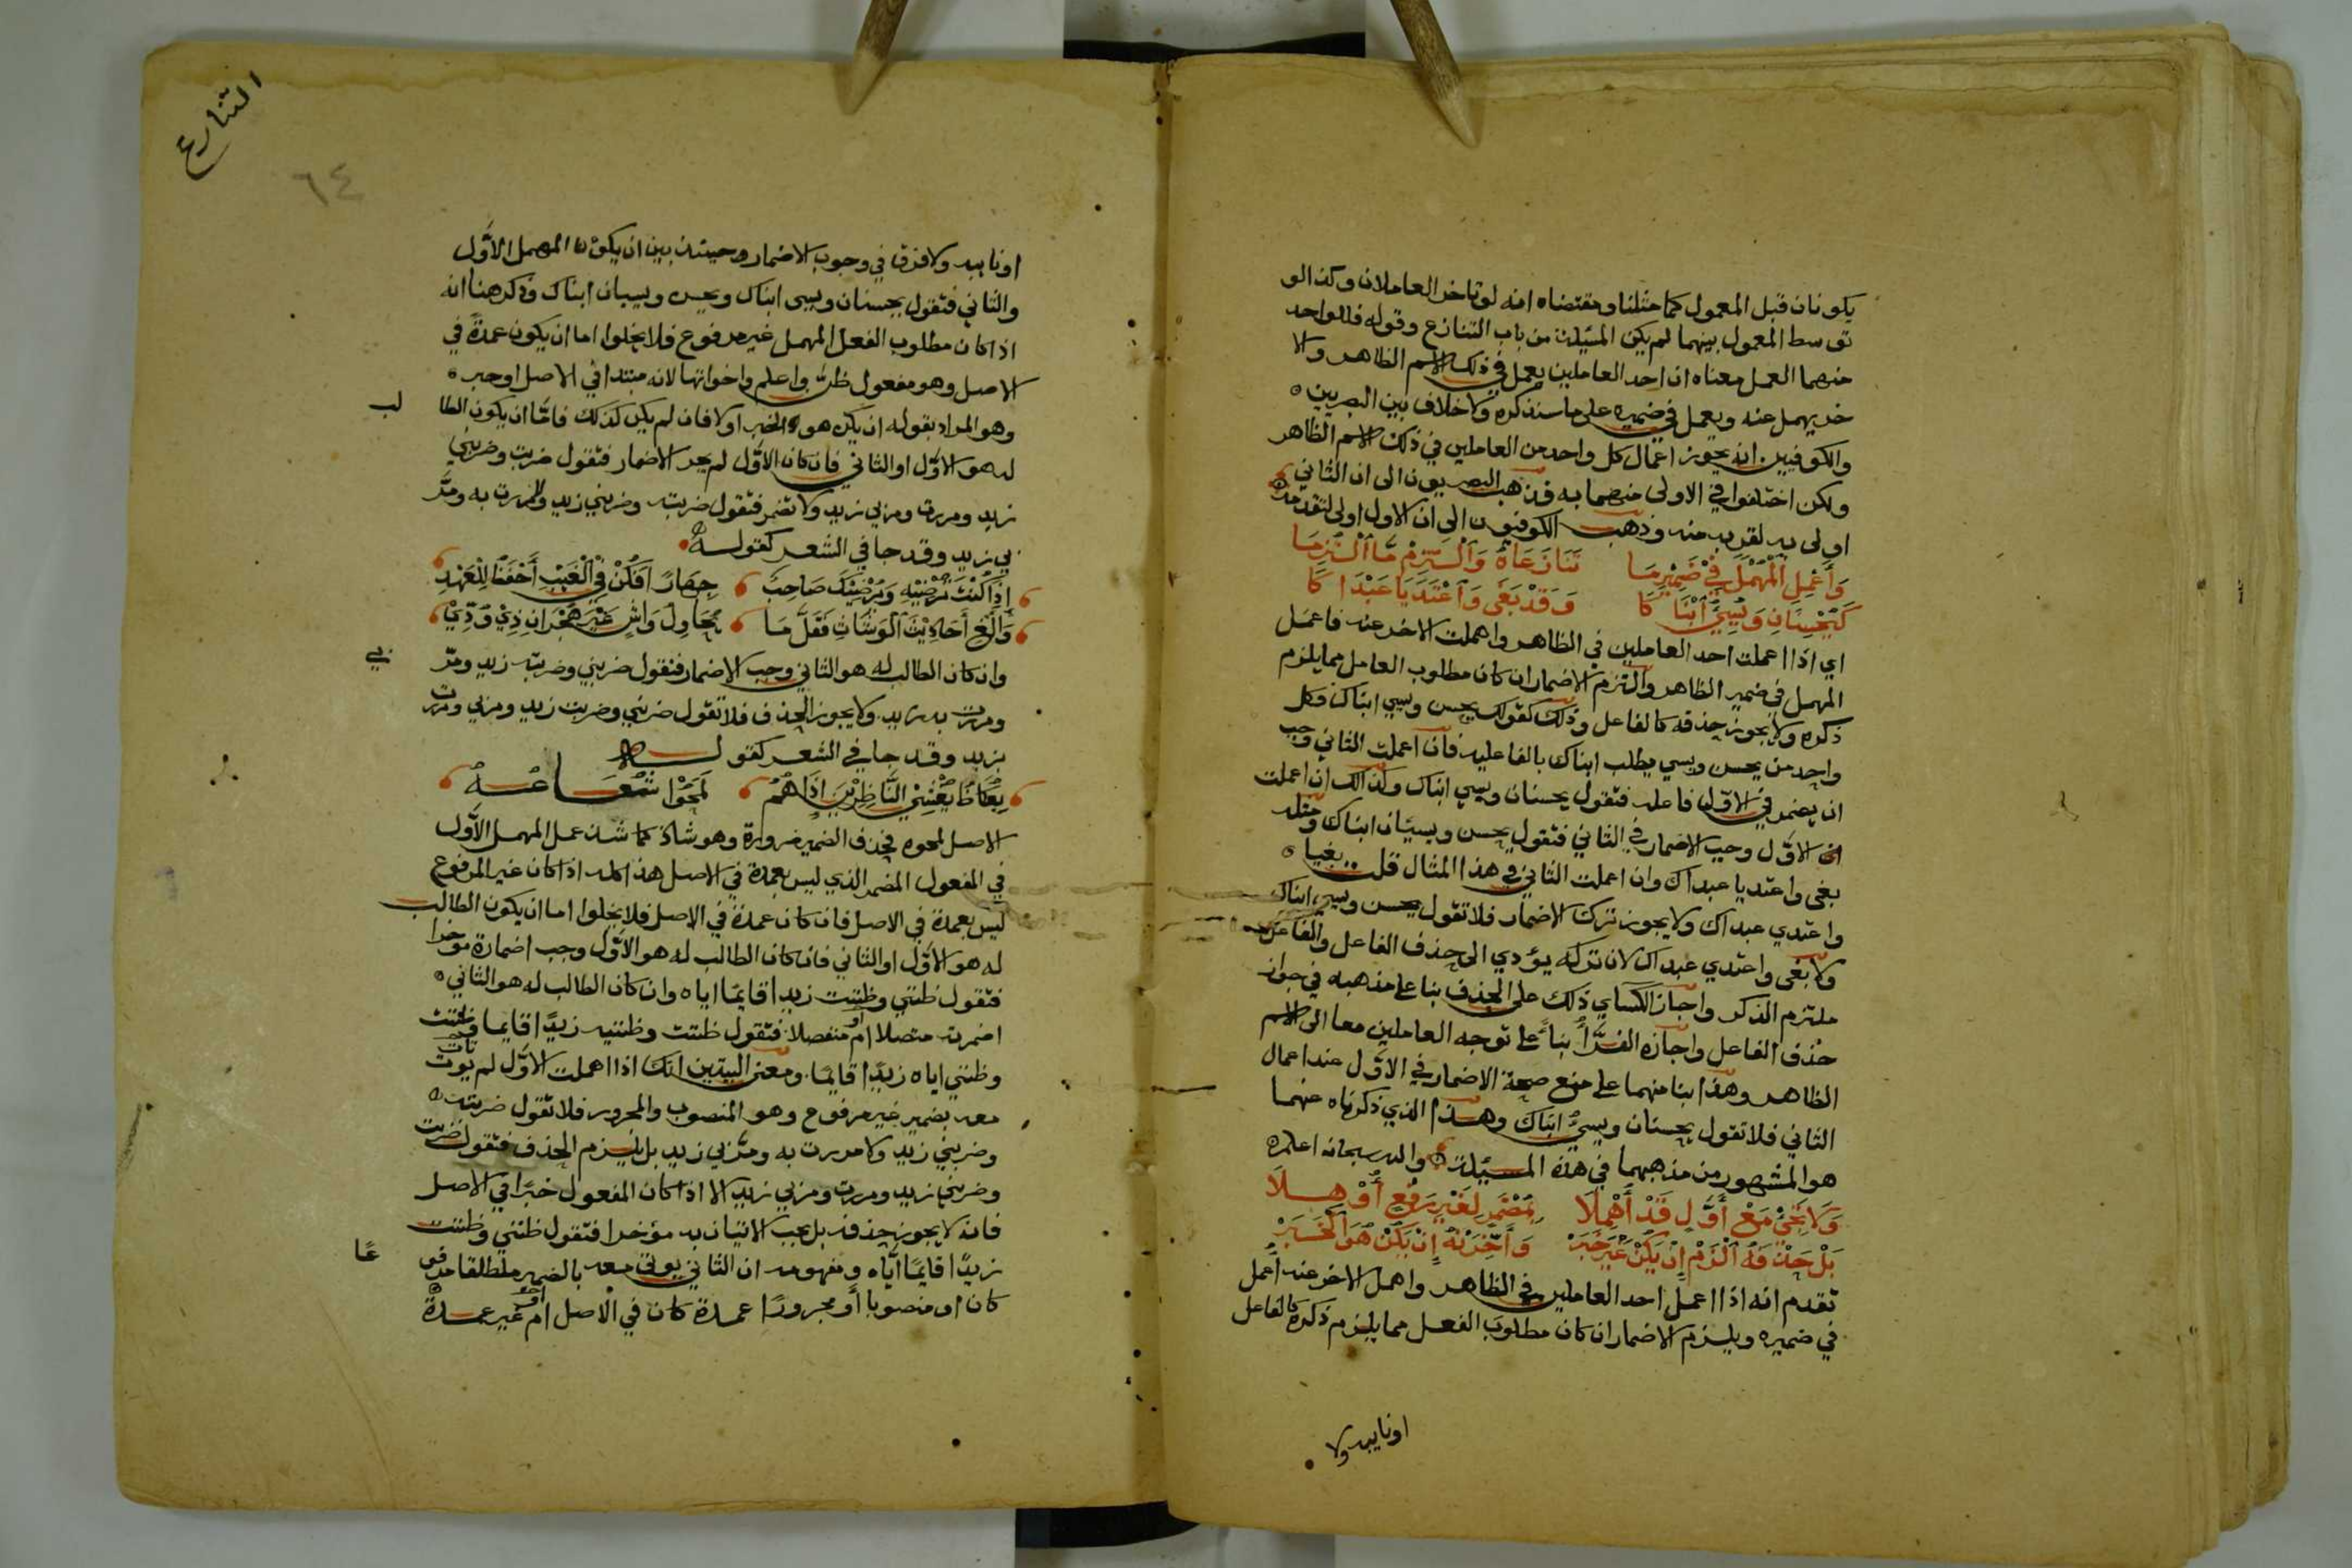 يكونان قبل المعمول كما مثلنا ومقتضاه انه لو تاخر العاملان وكذا لو
توسط المعمول بينهما لم يكن المسئلة من باب التنازع وقوله فللواحد
منهما العمل معناه ان احد العاملين يعمل في ذلك الاسم الظاهر والا
خر يهمل عنه ويعمل في ضميره على ما سنذكره ولا خلاف بين البصريين
والكوفيين انه يجوز اعمال كل واحد من العاملين في ذلك الاسم الظاهر
ولكن اختلفوا في الاولى منهما به فذهب البصريون الى ان الثاني
اولى به لقربه منه وذهب الكوفيون الى ان الاول اولى لتقدمه
وَأَعْمِلِ الْمُهْمَلَ فِي ضَمِيْرِ مَا تَنَازَعَاهُ وَالْتَزِمْ مَا الْتُزِمَا
كَيُحْسِنَانِ وَيُسِيْءُ ابْنَاكَا وَقَدْ بَغَى وَاعْتَدَيَا عَبْدَاكَا
اي اذا اعملت احد العاملين في الظاهر واهملت الاخر عنه فاعمل
المهمل في ضمير الظاهر والتزم الاضمار ان كان مطلوب العامل مما يلزم
ذكره ولا يجوز حذفه كالفاعل وذلك كقولك يحسن ويسي ابناك فكل
واحد من يحسن ويسي يطلب ابناك بالفاعلية فان اعملت الثاني وجب
ان يضمر في الاول فاعله فتقول يحسنان ويسي ابناك وكذلك ان اعملت
الاول وجب الاضمار في الثاني فتقول يحسن ويسيان ابناك ومثله
بغى واعتديا عبداك وان اعملت الثاني في هذا المثال قلت بغيا
واعتدي عبداك ولا يجوز ترك الاضمار فلا تقول يحسن ويسي ابناك
ولا بغى واعتدي عبداك لان تركه يؤدي الى حذف الفاعل والفاعل
ملتزم الذكر واجاز الكساي ذلك على الحذف بنا على مذهبه في جواز
حذف الفاعل واجازه الفرّاء بناءً على توجه العاملين معا الى الاسم
الظاهر وهذا بنا منهما على منع صحة الاضمار في الاول عند اعمال
الثاني فلا تقول يحسنان ويسيء ابناك وهذا الذي ذكرناه عنهما
هو المشهور من مذهبهما في هذه المسئلة والله سبحانه اعلم
وَلَا تَجِئْ مَعْ أَوَّلٍ قَدْ أُهْمِلَا بِمُضْمَرٍ لِغَيْرِ رَفْعٍ أُوْهِلَا
بَلْ حَذْفَهُ الْزَمْ إِنْ يَكُنْ غَيْرَ خَبَرْ وَأَخِّرَنْهُ إِنْ يَكُنْ هُوَ الْخَبَرْ
تقدم انه اذا اعمل احد العاملين في الظاهر واهمل الاخر عنه اعمل
في ضميره ويلزم الاضمار ان كان مطلوب الفعل مما يلزم ذكره كالفاعل
اونايبه ولا
التنازع
٦٤
او نايبه ولا فرق في وجوب الاضمار وحينئذ بين ان يكون المهمل الاوّل
والثاني فتقول يحسنان ويسي ابناك ويحسن ويسيان ابناك وذكر هنا انه
اذا كان مطلوب الفعل المهمل غير مرفوع فلا يخلوا اما ان يكون عمدة في
الاصل وهو مفعول ظن واعلم واخواتها لانه مبتدا في الاصل او خبر
وهو المراد بقوله ان يكن هو الخبر اولا فان لم يكن كذلك فامّا ان يكون الطا لب
له هو الاوّل او الثاني فان كان الاوّل لم يجز الاضمار فتقول ضربت وضربني
زيد ومررت ومر بي زيد ولا تضمر فتقول ضربته وضربني زيد ولا مررت به ومرّ
بي زيد وقد جا في الشعر كقوله
إِذَا كُنْتَ تُرْضِيْهِ وَيُرْضِيْكَ صَاحِبٌ جِهَارًا فَكُنْ فِي الْغَيْبِ أَحْفَظَ لِلْعَهْدِ
وَأَلْغِ أَحَادِيْثَ الْوُشَاةِ فَقَلَّ مَا يُحَاوِلُ وَاشٍ غَيْرَ هِجْرَانِ ذِيْ وُدِّيْ
وان كان الطالب له هو الثاني وجب الاضمار فتقول ضربني وضربته زيد ومرّ بي
ومررت به زيد ولا يجوز الحذف فلا تقول ضربني وضربت زيد ومر بي ومررت
بزيد وقد جا في الشعر كقوله
بِعُكَاظَ يُعْشِي النَّاظِرِيْنَ إِذَا هُمُ لَمَحُوْا شُعَاعُهُ
الاصل لمحوه فحذف الضمير ضرورة وهو شاذ كما شذ عمل المهمل الاوّل
في المفعول المضمر الذي ليس بعمدة في الاصل هذا كله اذا كان غير المرفوع
ليس بعمدة في الاصل فان كان عمدة في الاصل فلا يخلوا اما ان يكون الطالب
له هو الاوّل او الثاني فان كان الطالب له هو الاوّل وجب اضماره موخرا
فتقول ظنني وظننت زيدا قايمًا اياه وان كان الطالب له هو الثاني
اضمرته متصلا ام او منفصلا فتقول ظننت وظننيه زيدًا قايما وظننت
وظنني اياه زيدًا قايمًا ومعنى البيتين انك اذا اهملت الاوّل لم يوت تات
معه بضمير غير مرفوع وهو المنصوب والمجرور فلا تقول ضربته
وضربني زيد ولا مررت به ومرّ بي زيد بل يلزم الحذف فتقول ضربت
وضربني زيد ومررت ومر بي زيد الا اذا كان المفعول خبرًا في الاصل
فانه لا يجوز حذفه بل يجب الاتيان به مؤخرا فتقول ظنني وظننت
زيدًا قايمًا ايّاه ومفهومه ان الثاني يوتى معه بالضمير مطلقا مرفو عًا
كان او منصوبا أو مجرورًا عمدة كان في الاصل ام او غير عمدة